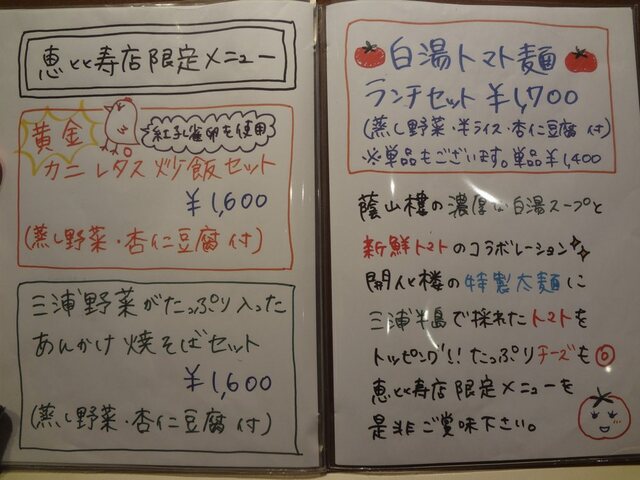 恵比寿店限定メニュー
黄金
紅孔雀卵を使用
カニレタス炒飯セット
¥1,600
(蒸し野菜・杏仁豆腐付)
三浦野菜がたっぷり入った
あんかけ焼そばセット
¥1,600
(蒸し野菜・杏仁豆腐付)
白湯トマト麺
ランチセット ¥1,700
(蒸し野菜・半ライス・杏仁豆腐付)
※単品もございます。単品¥1,400
蔭山樓の濃厚な白湯スープと
新鮮トマトのコラボレーション
開化楼の特製太麺に
三浦半島で採れたトマトを
トッピング!!たっぷりチーズも
恵比寿店限定メニューを
是非ご賞味下さい。